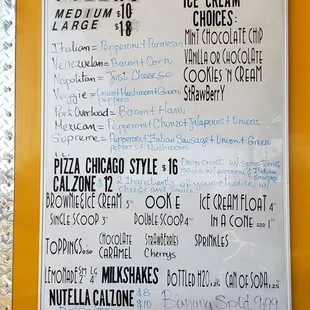 MEDIUM $10
LARGE $18
ICE CREAM
CHOICES:
MINT CHOCOLATE CHIP
VANILLA OR CHOCOLATE
COOKIES 'N CREAM
STRAWBERRY
Italian = Pepperoni + Parmesan
Venezuelan = Bacon + Corn
Napolitan = Just Cheese
Veggie = Onion + Mushroom + Green
peppers
Pork Overload = Bacon + Ham
Mexican = Pepperoni + Chorizo + Jalapeños + Onions
Supreme = Pepperoni + Italian Sausage + Onion + Green
peppers + Mushroom
PIZZA CHICAGO STYLE $16
Deep crust w/ Tomato
Sauce w/ pepperoni & Italian
Sausage
CALZONE $12
2 Ingredients of your choice w/
cheese and sauce
BROWNIE & ICE CREAM 5 COOKIE ICE CREAM FLOAT 4
SINGLE SCOOP 3 DOUBLE SCOOP 4 IN A CONE ADD 1
TOPPINGS .50 CHOCOLATE STRAWBERRIES SPRINKLES
CARAMEL Cherrys
LEMONADE SM 2 LG 4 MILKSHAKES BOTTLED H2O 1.25 CAN OF SODA 1.25
NUTELLA CALZONE $8 Banana Split 9.99
$10